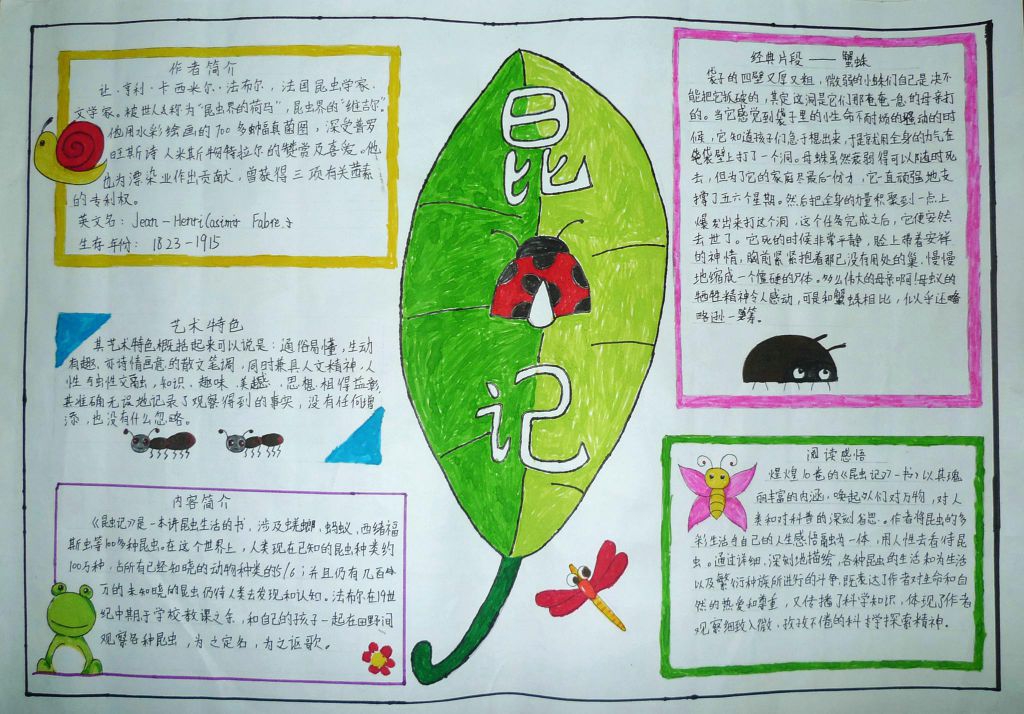 作者简介
让·亨利·卡西米尔·法布尔，法国昆虫学家.
文学家。被世人称为"昆虫界的荷马"，昆虫界的"维吉尔"。
他用水彩绘画的700多种真菌图，深受普罗
旺斯诗人米斯特拉尔的赞赏及喜爱。他
也为漂染业作出贡献，曾获得三项有关茜素
的专利权。
英文名：Jean-Henri Casimir Fabre
生存年份：1823-1915
艺术特色
其艺术特色概括起来可以说是：通俗易懂，生动
有趣、亦诗情画意的散文笔调，同时兼具人文精神，人
性与虫性交融，知识、趣味、美感、思想相得益彰，
其准确无误地记录了观察得到的事实，没有任何增
添，也没有什么忽略。
内容简介
《昆虫记》是一本讲昆虫生活的书，涉及蜣螂、蚂蚁、西绪福
斯虫等100多种昆虫。在这个世界上，人类现在已知的昆虫种类约
100万种，占所有已经知晓的动物种类的5/6；并且仍有几百
万的未知晓的昆虫仍待人类去发现和认知。法布尔在19世
纪中期于学校教课之余，和自己的孩子一起在田野间
观察各种昆虫，为之定名，为之讴歌。
昆
虫
记
经典片段——蟹蛛
袋子的四壁又厚又粗，微弱的小蛛们自己是决不
能把它抓破的，其实这洞是它们那奄奄一息的母亲打
的。当它感觉到袋子里的小生命不耐烦的骚动的时
候，它知道孩子们急于想出来，于是就用全身的力气在
袋壁上打了一个洞。母蛛虽然衰弱得可以随时死
去，但为了它的家庭尽最后一份力，它一直顽强地支
撑了五六个星期。然后把全身的力量积聚到一点上
爆发出来打这个洞，这个任务完成之后，它便安然
去世了。它死的时候非常平静，脸上带着安祥
的神情，胸前紧紧抱着那已没有用处的巢，慢慢
地缩成一个僵硬的尸体。多么伟大的母亲啊！母蚁的
牺牲精神令人感动，可是和蟹蛛相比，似乎还略
略逊一筹。
阅读感悟
煌煌10卷的《昆虫记》一书，以其瑰
丽丰富的内涵，唤起人们对万物，对人
类和对科普的深刻省思。作者将昆虫的多
彩生活与自己的人生感悟融为一体，用人性去看待昆
虫。通过详细，深刻地描绘，各种昆虫的生活和为生活
以及繁衍种族所进行的斗争，既表达了作者对生命和自
然的热爱和尊重，又传播了科学知识，体现了作者
观察细致入微，孜孜不倦的科学探索精神。